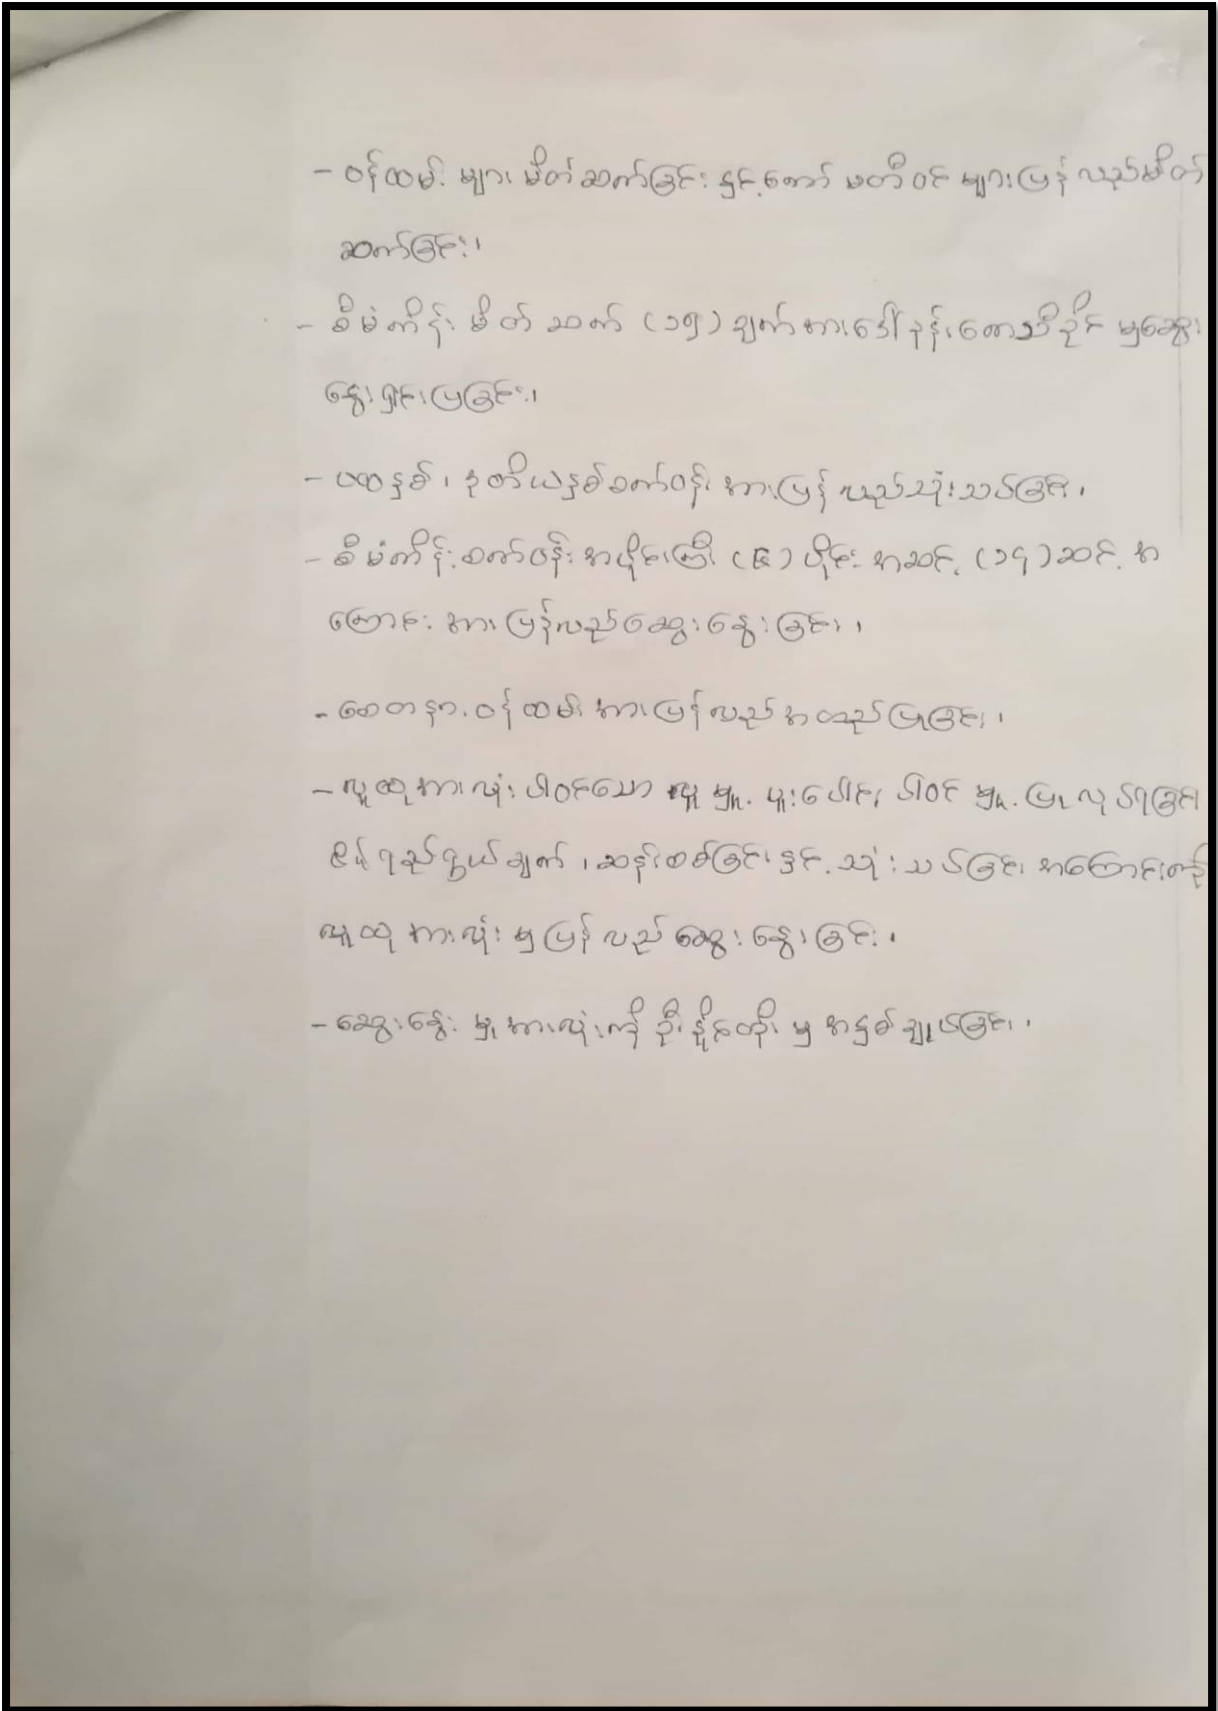 - ဝန်ထမ်းများ မိတ်ဆက်ခြင်း နှင့် ကော်မတီဝင်များပြန်လည်မိတ်
ဆက်ခြင်း၊
- စီမံကိန်း မိတ်ဆက် (၁၅) ချက်အား ဒေါ်နန်းခေသီခိုင် မှဆွေး
နွေးရှင်းပြခြင်း၊
- ပထနှစ်၊ ဒုတိယနှစ်စက်ဝန်း အားပြန်လည်သုံးသပ်ခြင်း၊
- စီမံကိန်းစက်ဝန်း အပိုင်းကြီး (၄) ပိုင်း အဆင့် (၁၄) ဆင့် အ
ကြောင်း အား ပြန်လည်ဆွေးနွေးခြင်း၊
- စေတနာ့ဝန်ထမ်း အားပြန်လည်အတည်ပြုခြင်း၊
- လူထုအားလုံး ပါဝင်သော လူမှု့ ပူးပေါင်း ပါဝင်မှု့ ပြုလုပ်ရခြင်း
ရည်ရွယ်ချက်၊ ဆန်းစစ်ခြင်း နှင့် သုံးသပ်ခြင်း အကြောင်းကို
လူထုအားလုံး မှပြန်လည်ဆွေးနွေးခြင်း၊
- ဆွေးနွေးမှုအားလုံးကို ဦးနိူင်တိုး မှ အနှစ်ချုပ်ခြင်း၊